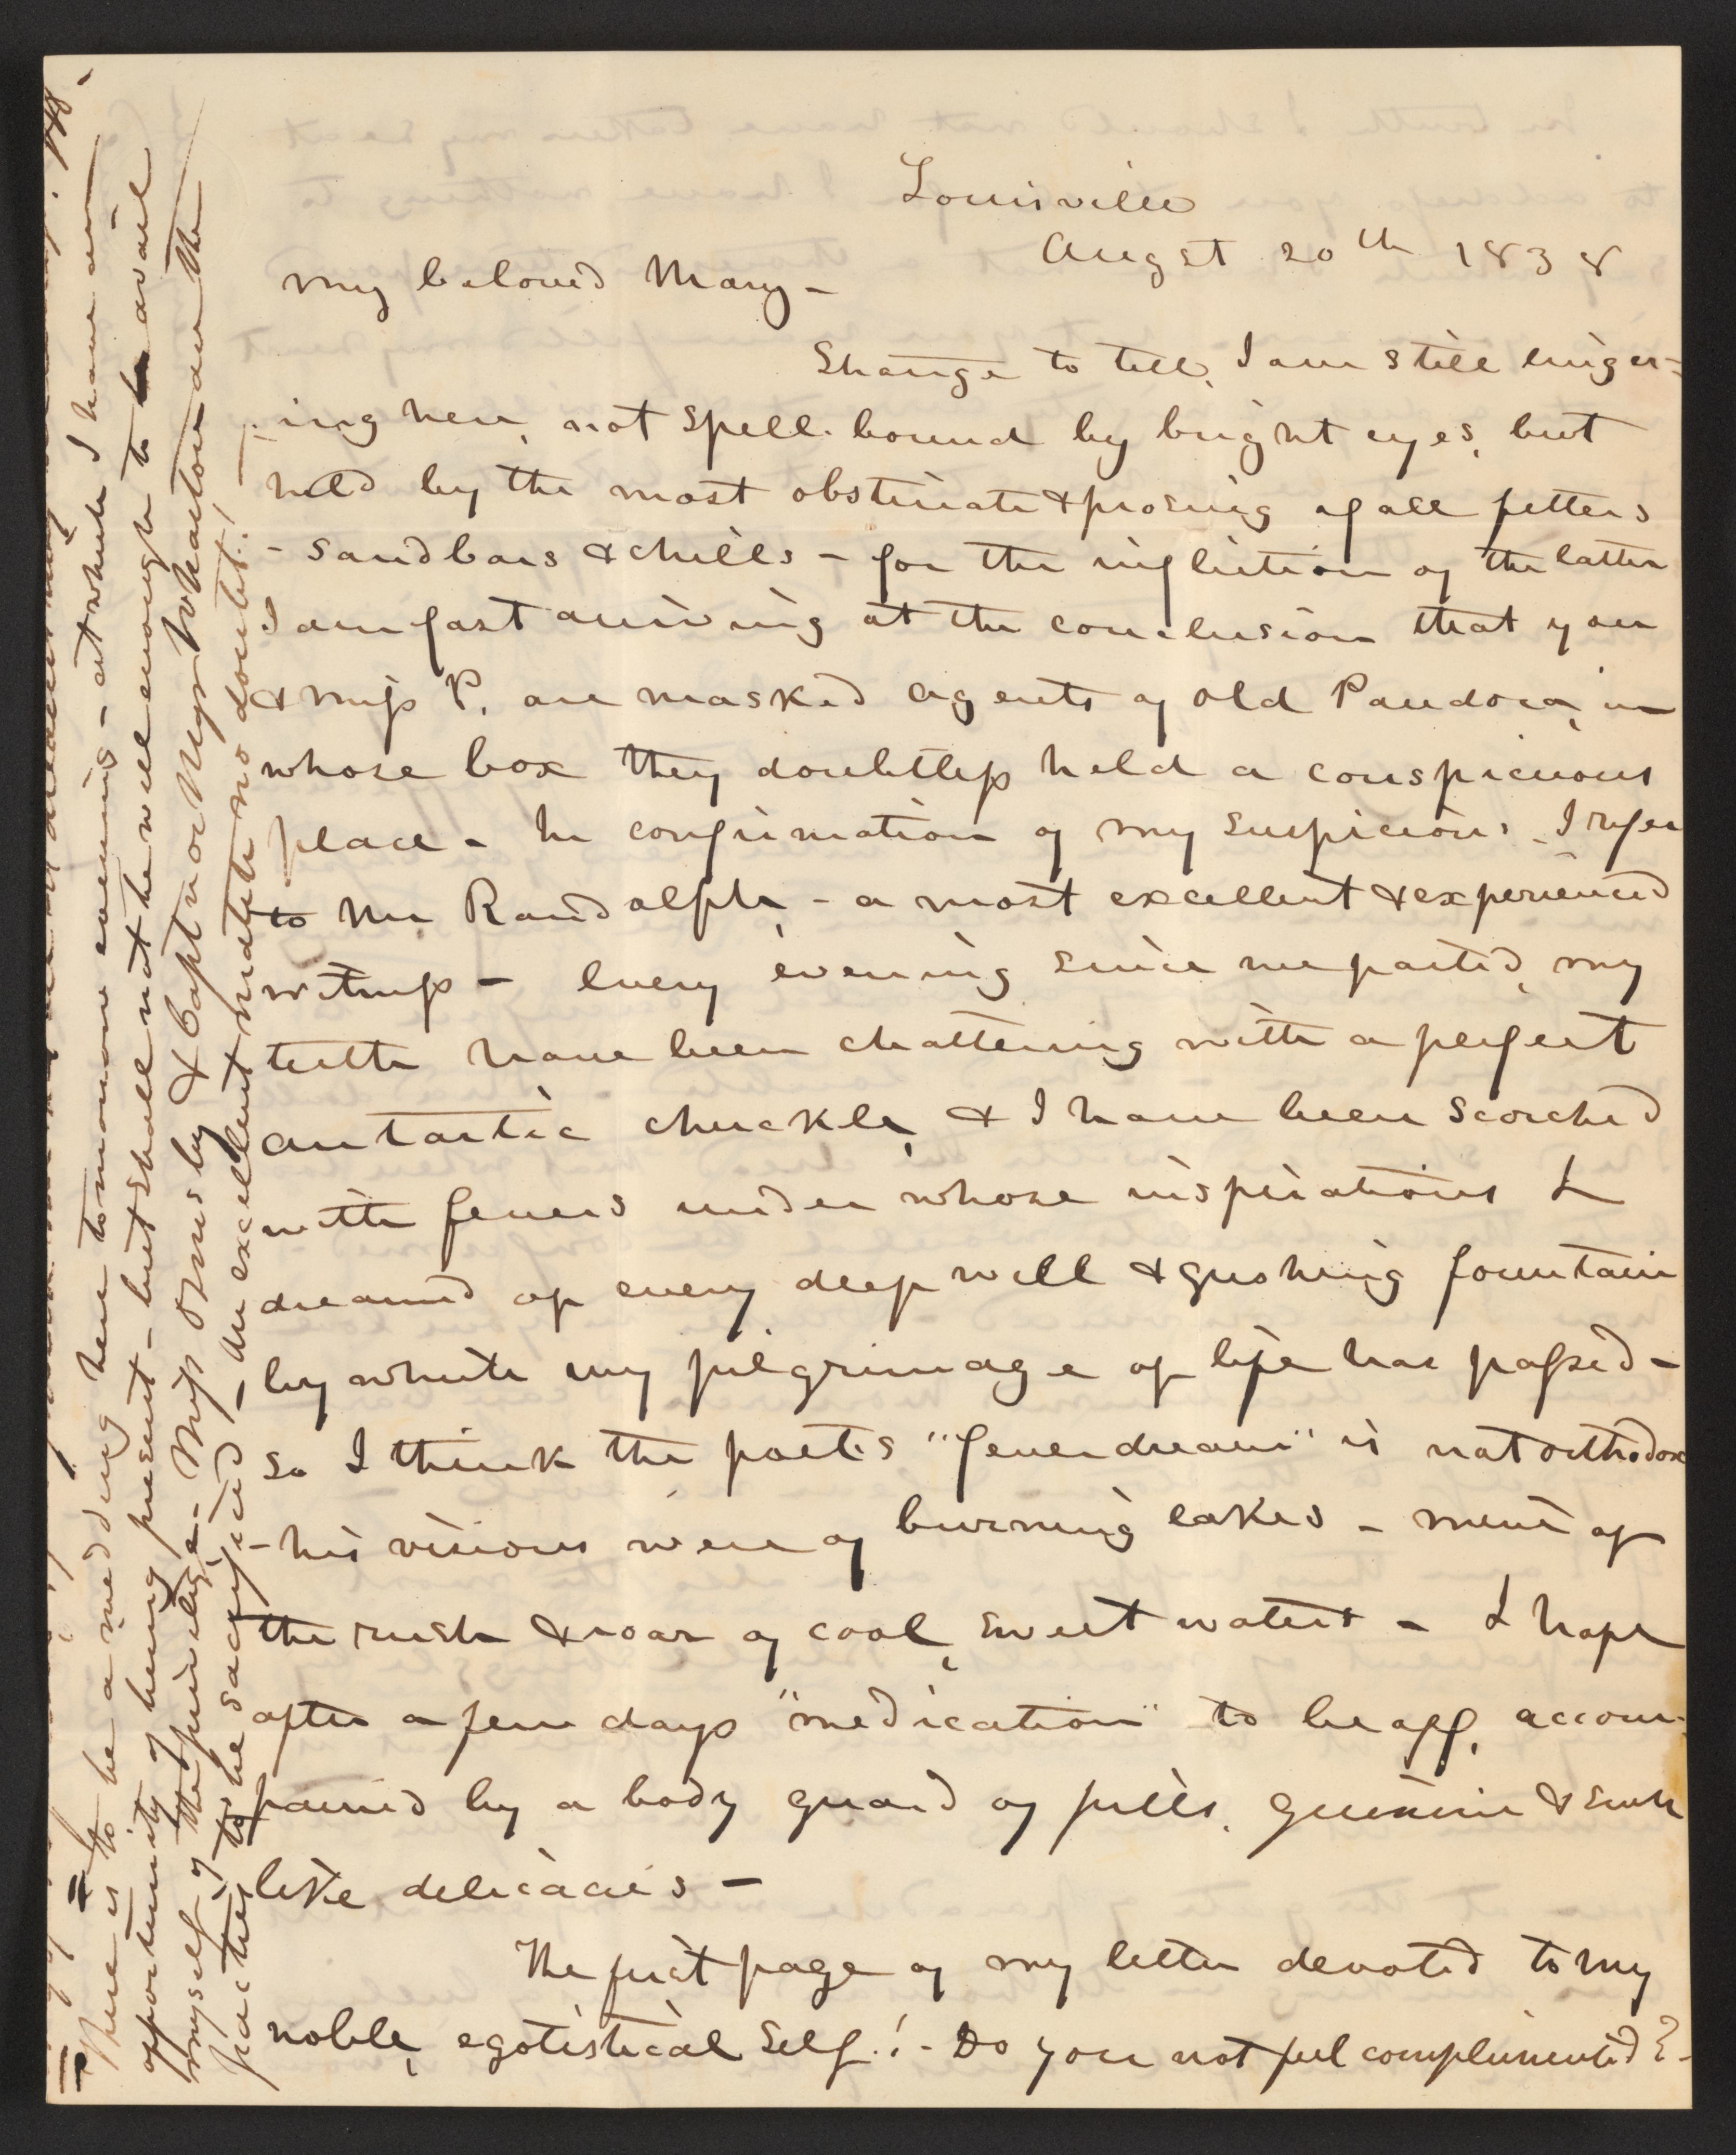 Louisville
Augst 20th 1838
My beloved Mary -
Strange to tell, I am still linger-
ing here, not spell-bound by bright eyes, but
held by the most obstinate & prosing of all fetters
- sandbars & chills - for the infliction of the latter
I am fast arriving at the conclusion that you
& Miss P. are masked agents of old Pandora, in
whose box they doubtless held a conspicuous
place - In confirmation of my suspicions I refer
to Mr Randolph, - a most excellent & experienced
witness - Every evening since we parted, my
teeth have been chattering with a perfect
antartic chuckle, & I have been scorched
with fevers under whose inspirations I
dreamed of every deep well & gushing fountain
by which my pilgrimage of life has passed -
so I think the poets "fever dream" is not orthodox
- his visions were of burning lakes - mine of
the rush & roar of cool, sweet waters - I hope
after a few days "medication" to be off, accom-
panied by a body guard of pills, quinine & such
like delicacies -
The first page of my letter devoted to my
noble, egotistical self! - Do you not feel complimented? -
There is to be a wedding here tomorrow evening - at which I have an
opportunity of being present - but shall not be well enough to avail
myself of the privilege - Miss Ormsby & Capt
parties to be sacrificed - An excellent match no doubt!